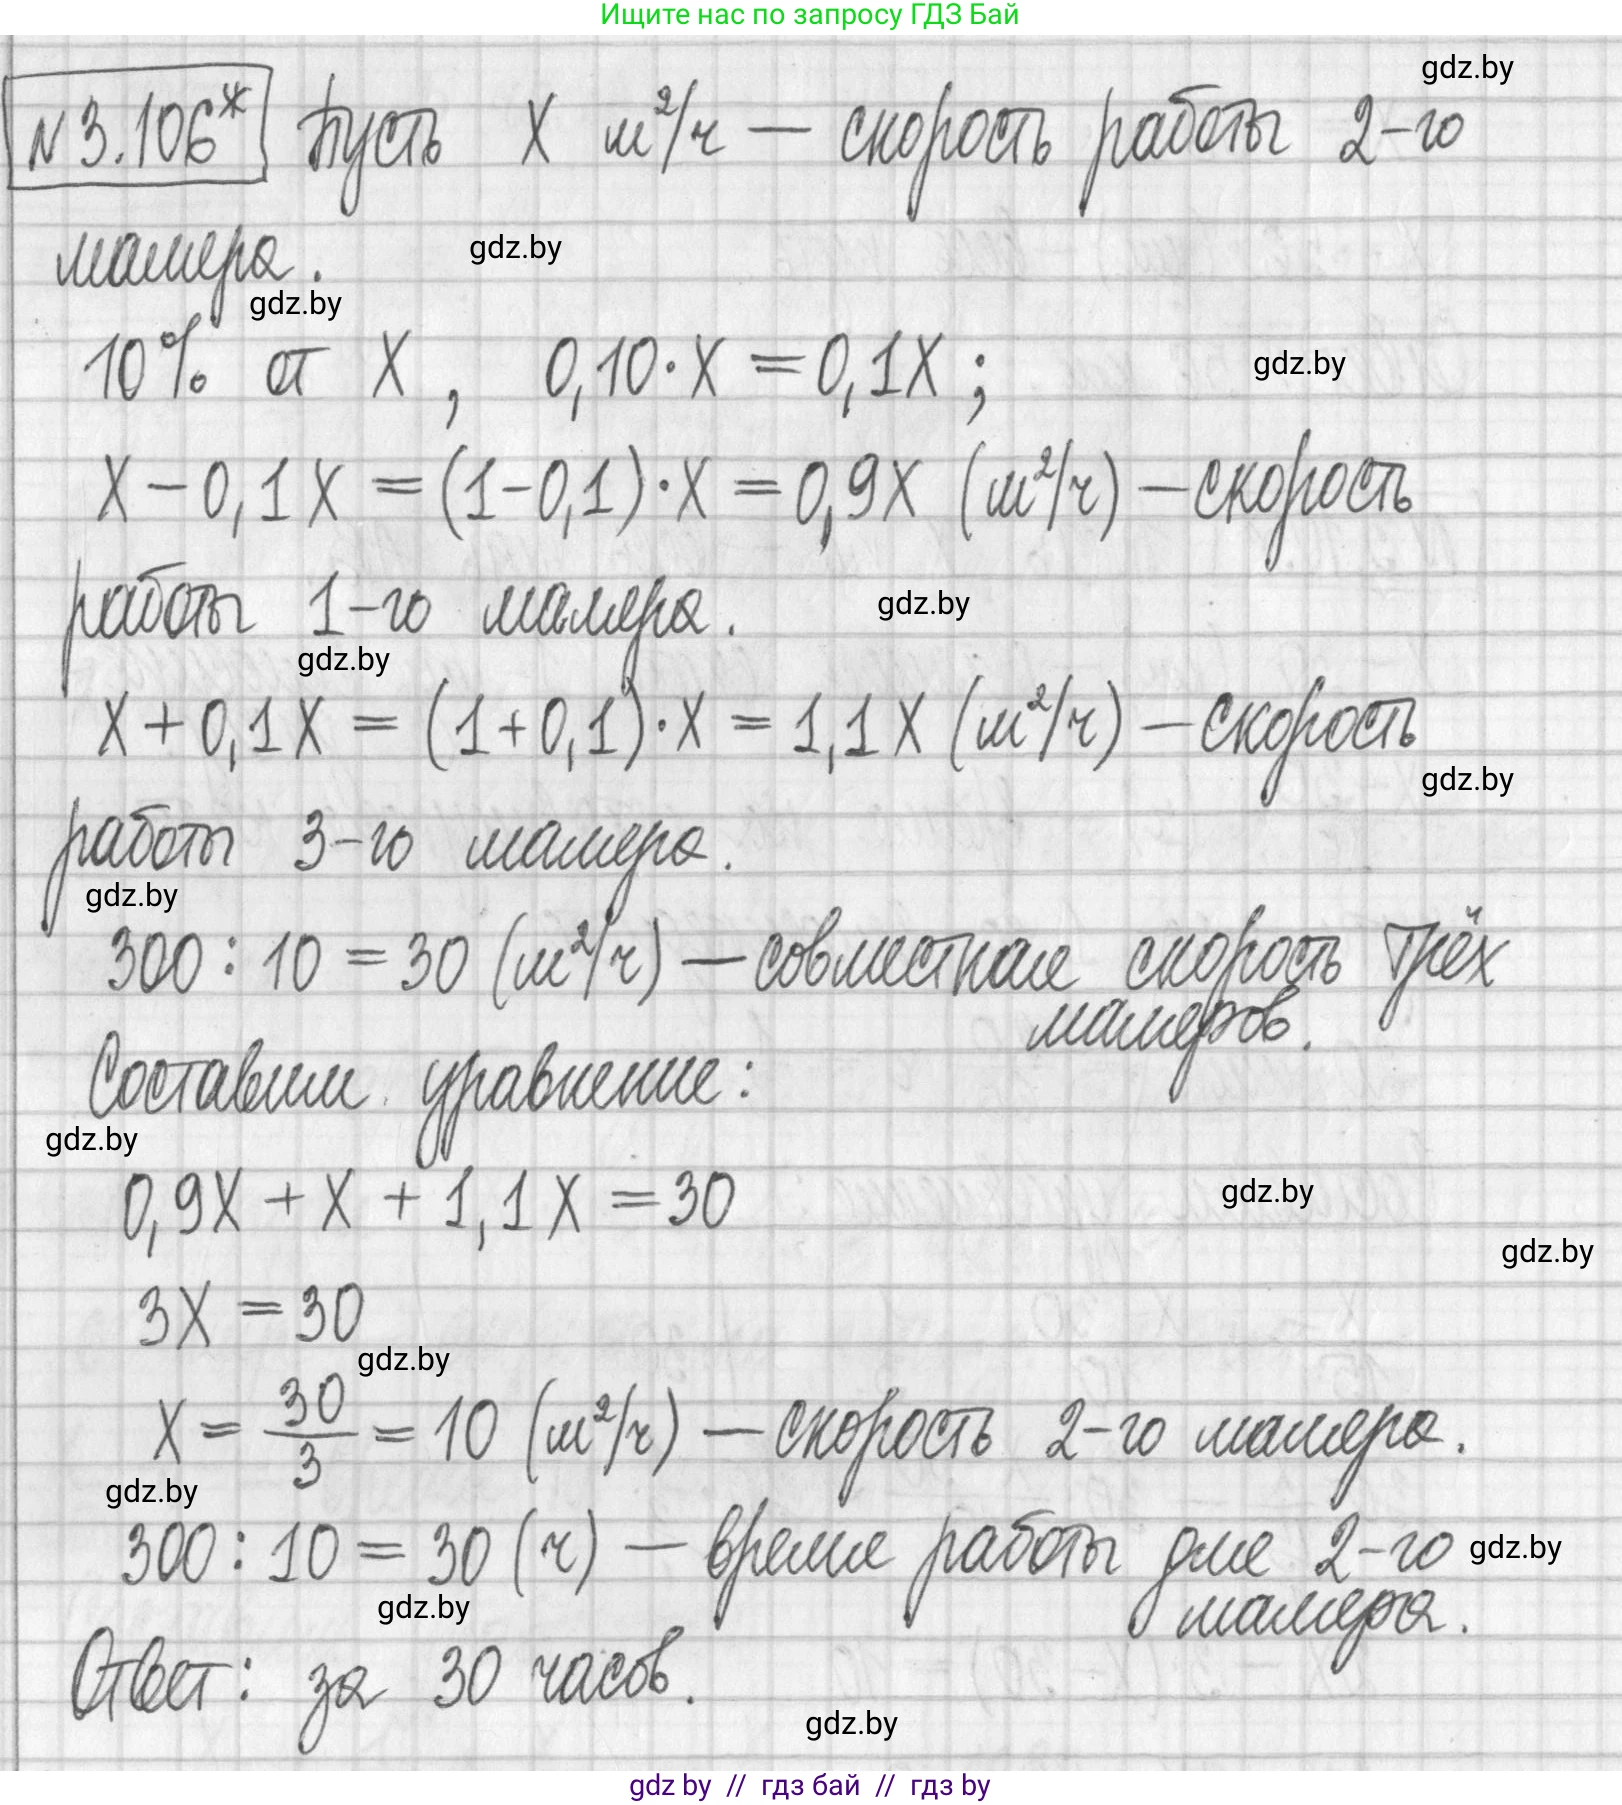 Ищите нас по запросу ГДЗ Бай
gdz.by
№3.106* Пусть x м²/ч — скорость работы 2-го
маляра.
gdz.by
gdz.by
10% от x, 0,10·x = 0,1x;
gdz.by
x − 0,1x = (1−0,1)·x = 0,9x (м²/ч) — скорость
работы 1-го маляра.
gdz.by
gdz.by
x + 0,1x = (1+0,1)·x = 1,1x (м²/ч) — скорость
gdz.by
работы 3-го маляра.
gdz.by
300 : 10 = 30 (м²/ч) — совместная скорость трёх
маляров.
Составим уравнение:
gdz.by
0,9x + x + 1,1x = 30
gdz.by
gdz.by
3x = 30
gdz.by
x = 30/3 = 10 (м²/ч) — скорость 2-го маляра.
gdz.by
300 : 10 = 30 (ч) — время работы для 2-го
gdz.by
маляра.
gdz.by
Ответ: за 30 часов.
gdz.by
gdz by // гдз бай // гдз by